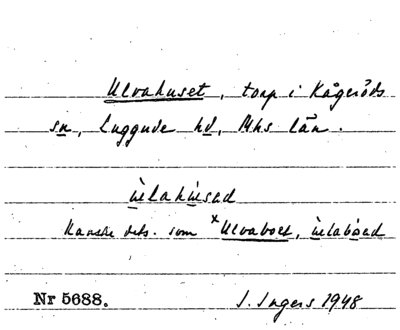 Ulvahuset, torp i Kågeröds
sn, Luggude hd, Mhs län.
ùlahùsad
Kanske dets. som ˣUlvaboet, ùlabòad
Nr 5688. I. Ingers 1948